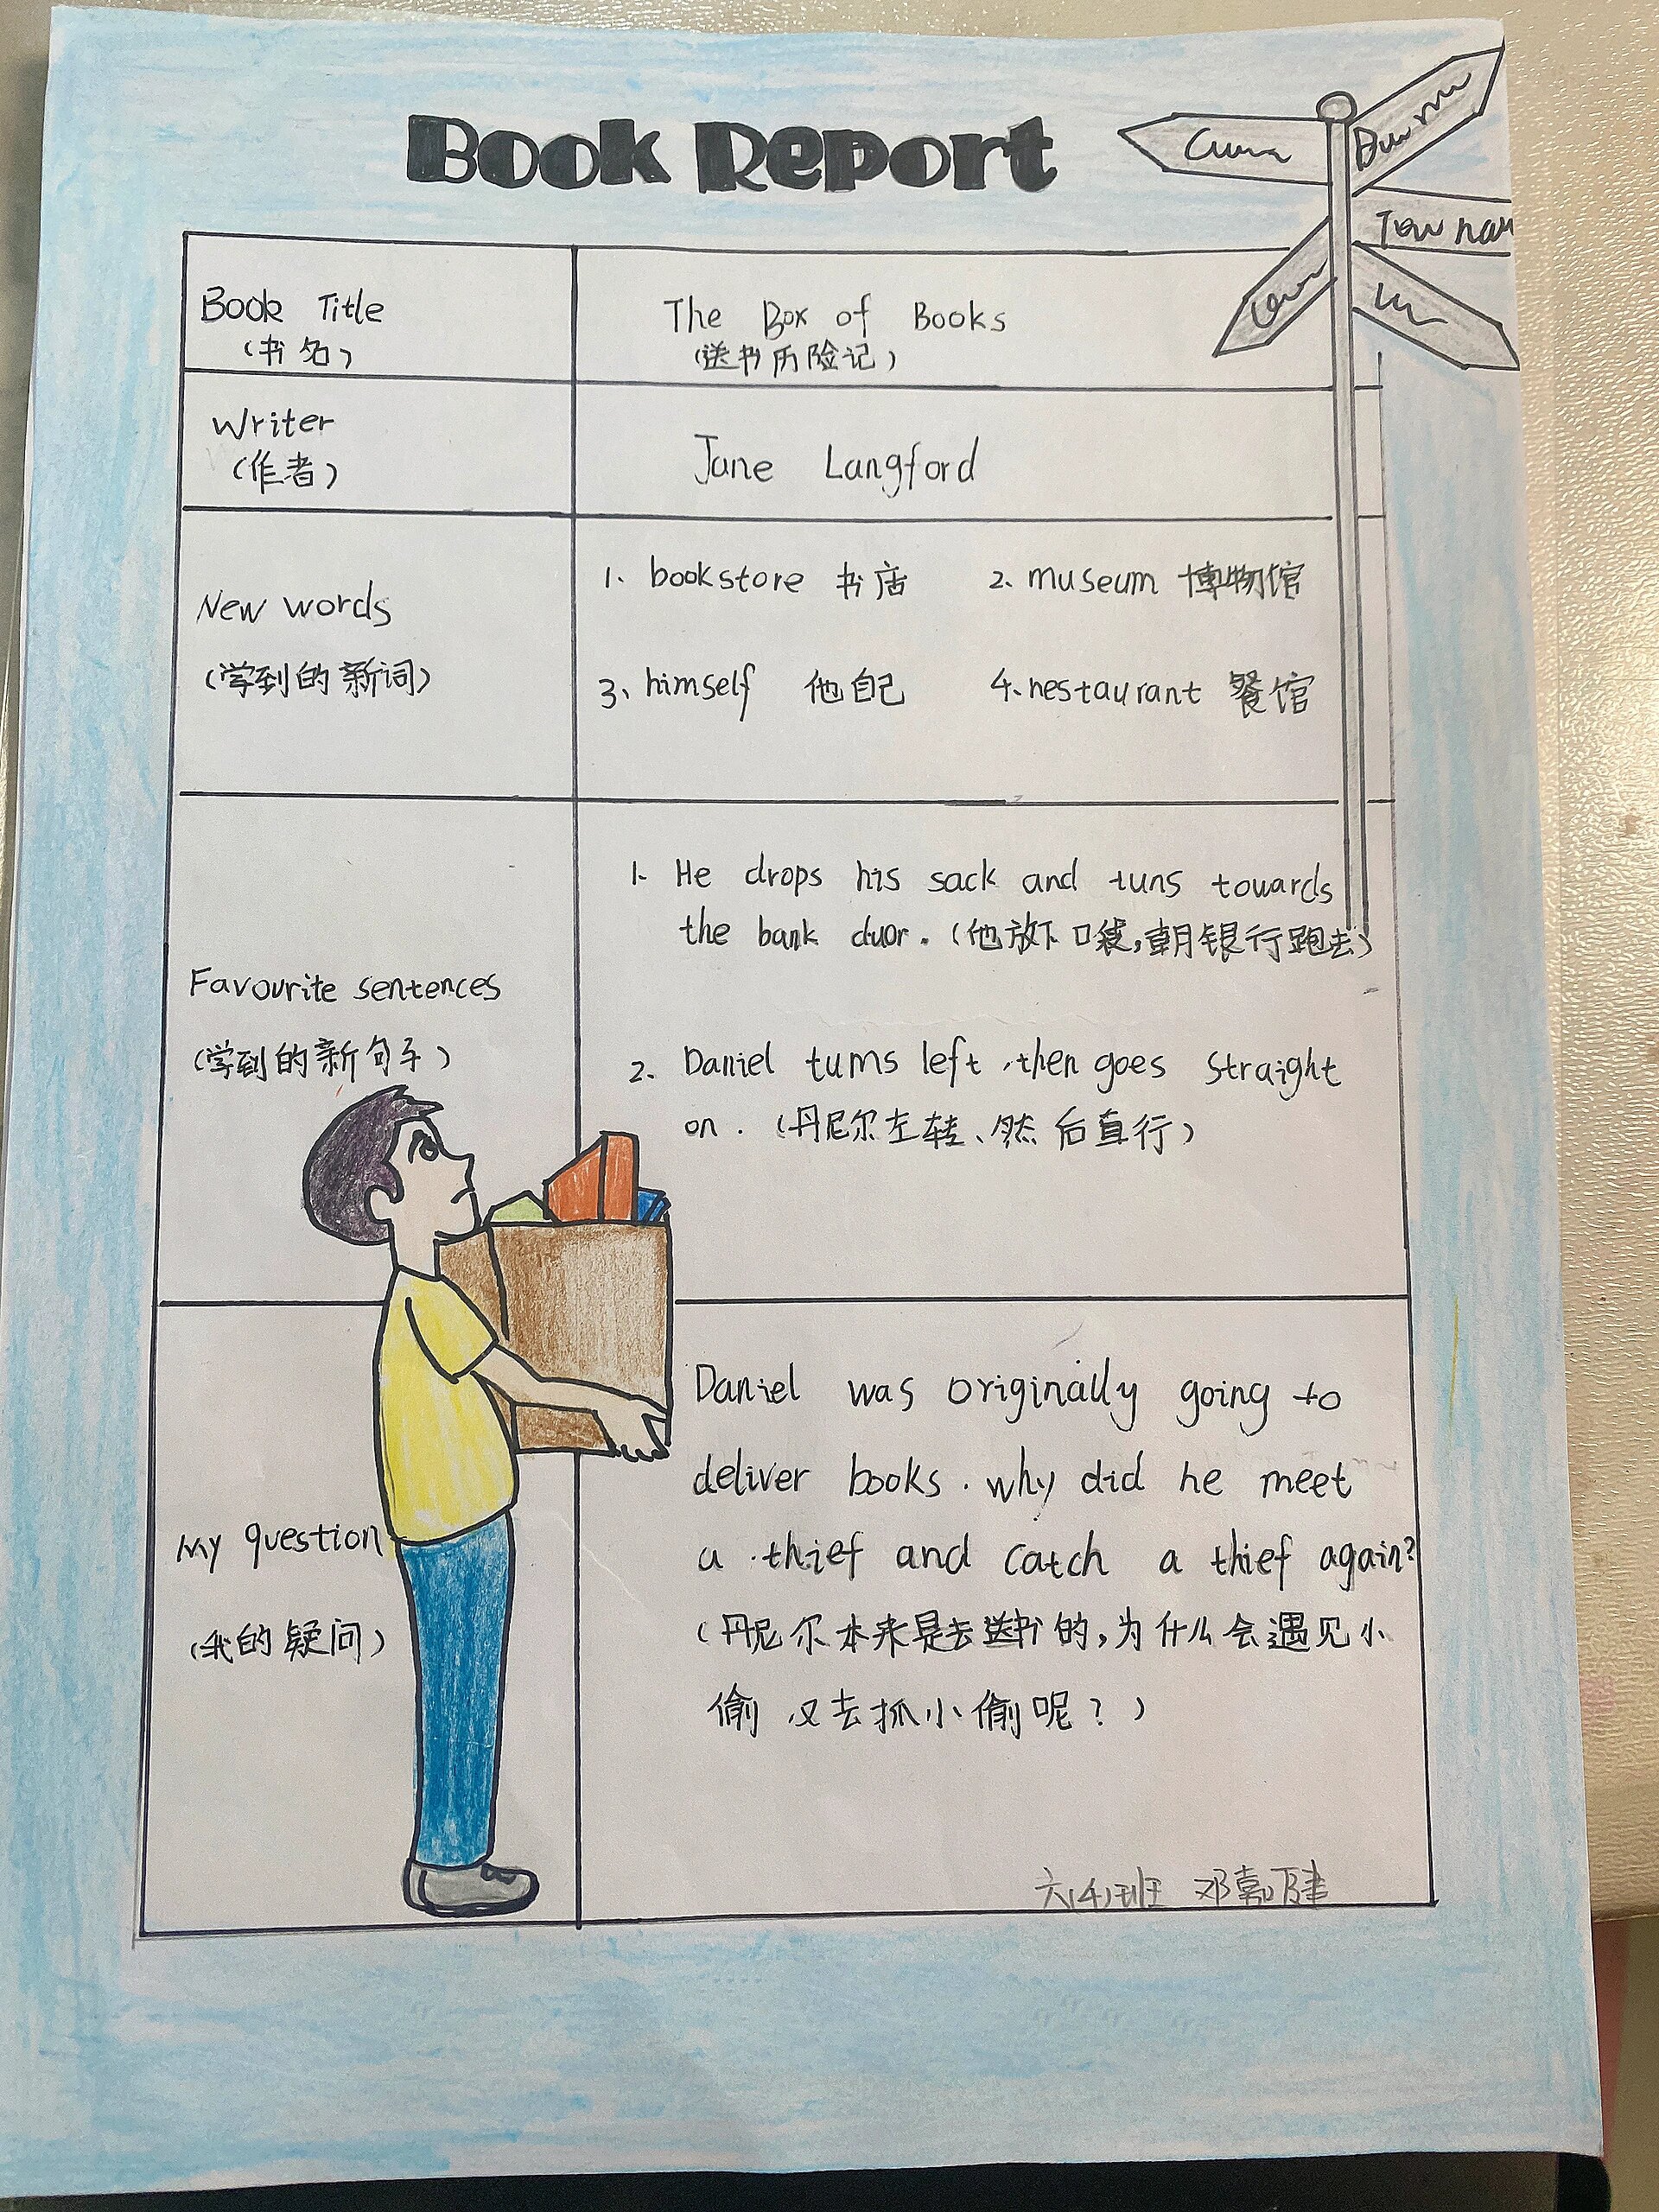 Book Report
Town nam
Book Title
(书名)
The Box of Books
(送书历险记)
Writer
(作者)
Jane Langford
New words
(学到的新词)
1、bookstore 书店 2、museum 博物馆
3、himself 他自己 4、restaurant 餐馆
Favourite sentences
(学到的新句子)
1、He drops his sack and tuns towards
the bank duor.(他放下口袋,朝银行跑去)
2、Daniel turns left, then goes straight
on.(丹尼尔左转、然后直行)
My question
(我的疑问)
Daniel was originally going to
deliver books. why did he meet
a thief and catch a thief again?
(丹尼尔本来是去送书的,为什么会遇见小
偷又去抓小偷呢?)
六(4)班 邓嘉健